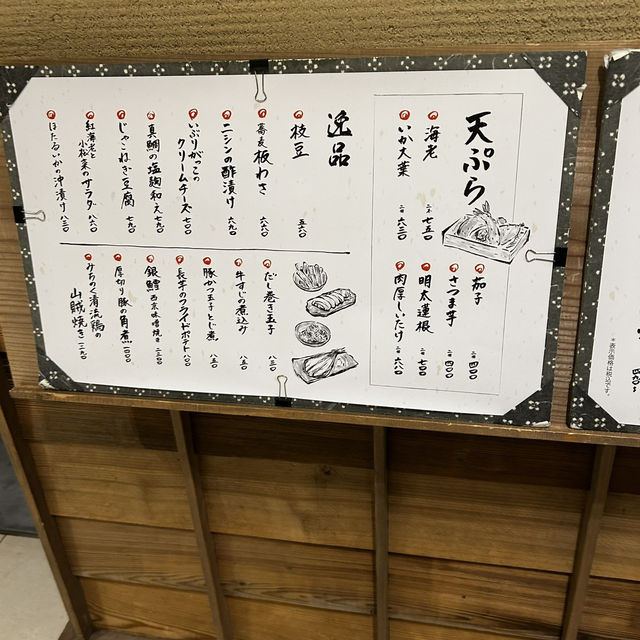 天ぷら
海老 二本 七五〇
いか大葉 二ケ 六三〇
茄子 二ケ 四〇〇
さつま芋 二ケ 四〇〇
明太蓮根 二ケ 七〇〇
肉厚しいたけ 二ケ 六八〇
逸品
枝豆 五六〇
蕎麦板わさ 六六〇
ニシンの酢漬け 六九〇
いぶりがっこの
クリームチーズ 七〇〇
真鯛の塩麹和え 七九〇
じゃこねぎ豆腐 七九〇
紅海老と
小松菜のサラダ 八六〇
ほたるいかの沖漬け 八三〇
だし巻き玉子 八三〇
牛すじの煮込み 八五〇
豚かつ玉子とじ煮
長芋のフライドポテト
銀鱈西京味噌焼き
厚切り豚の角煮
みちのく清流鶏の
山賊焼き
*表示価格は税込です。